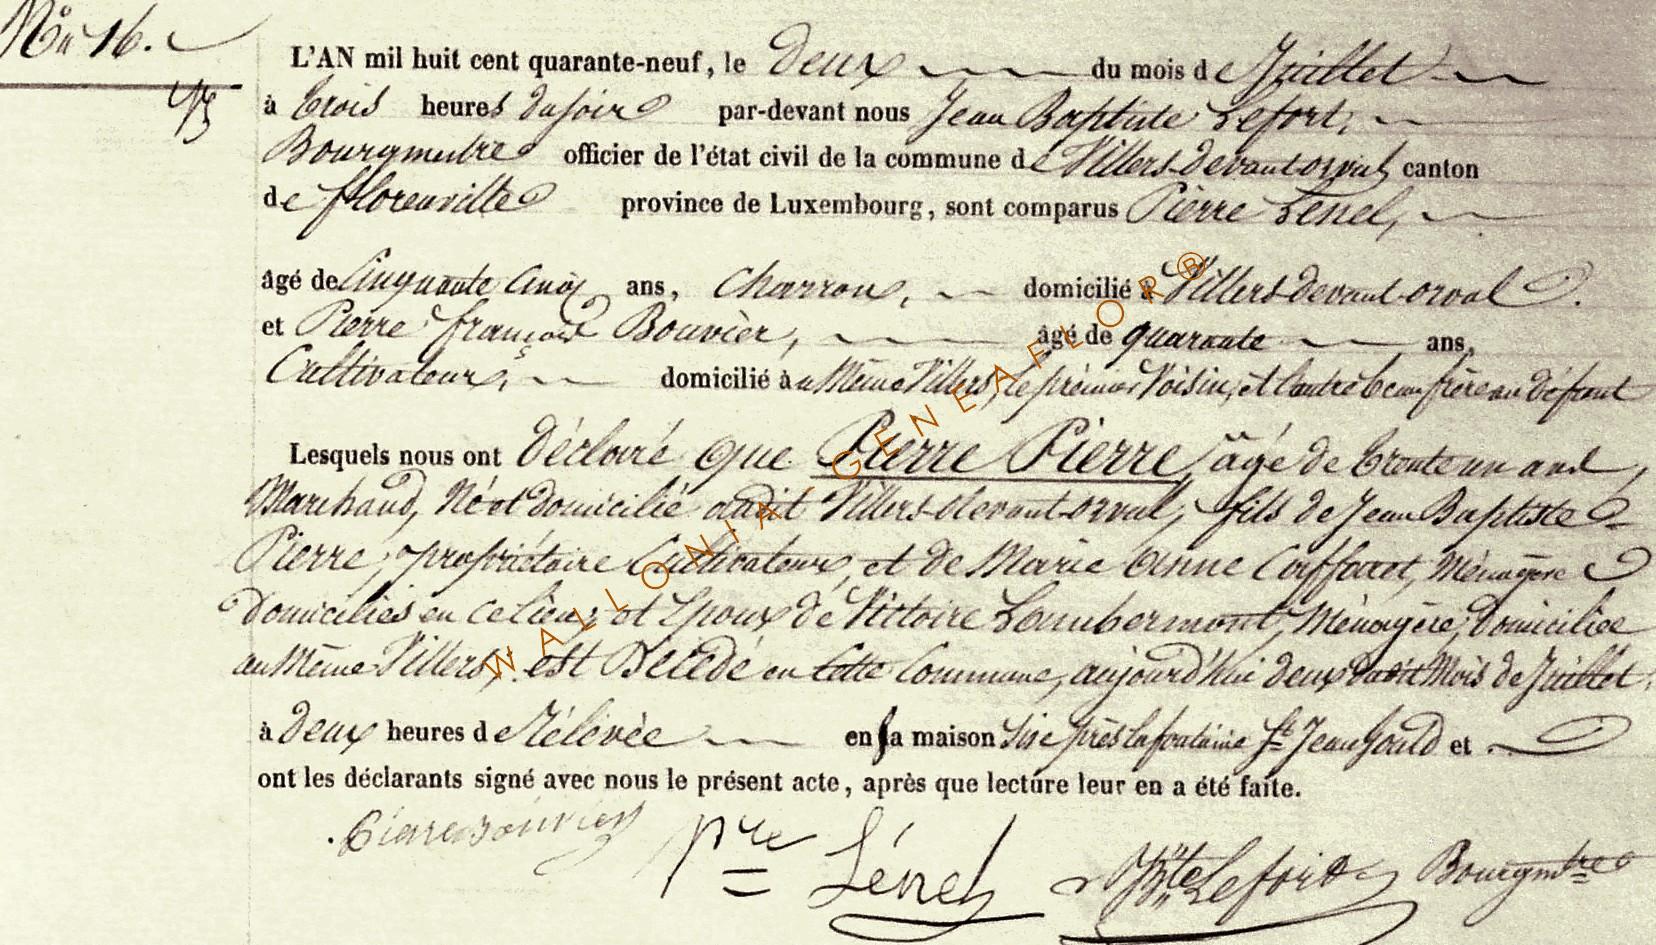 No 16.
L'AN mil huit cent quarante-neuf, le Deux du mois de Juillet
à trois heures du soir par-devant nous Jean Baptiste Lefort,
Bourgmestre officier de l'état civil de la commune de Villers-devant-orval canton
de florenville province de Luxembourg, sont comparus Pierre Lenel,
âgé de Cinquante Cinq ans, Charron, domicilié à Villers devant-orval.
et Pierre françois Bouvier, âgé de quarante ans,
Cultivateur, domicilié au Même Villers, le prémier Voisin, et l'autre beau frère au défunt
Lesquels nous ont Déclaré que Pierre Pierre, âgé de trente un ans,
Marchand, Né et domicilié audit Villers-devant-orval, fils de Jean Baptiste
Pierre, propriétaire Cultivateur, et de Marie Anne Ménagère
Domiciliés en ce lieu, et Epoux de Victoire Lambermont, Ménagère, Domiciliée
au Même Villers, est Décédé en cette Commune, aujourd'hui deux dudit Mois de Juillet,
à Deux heures de Rélévée en sa maison sise près la fontaine St. Jean et
ont les déclarants signé avec nous le présent acte, après que lecture leur en a été faite.
Pierre Bouvier Pre Lénel JBte Lefort Bourgmtre
WALLONIA GENEAFLOR®